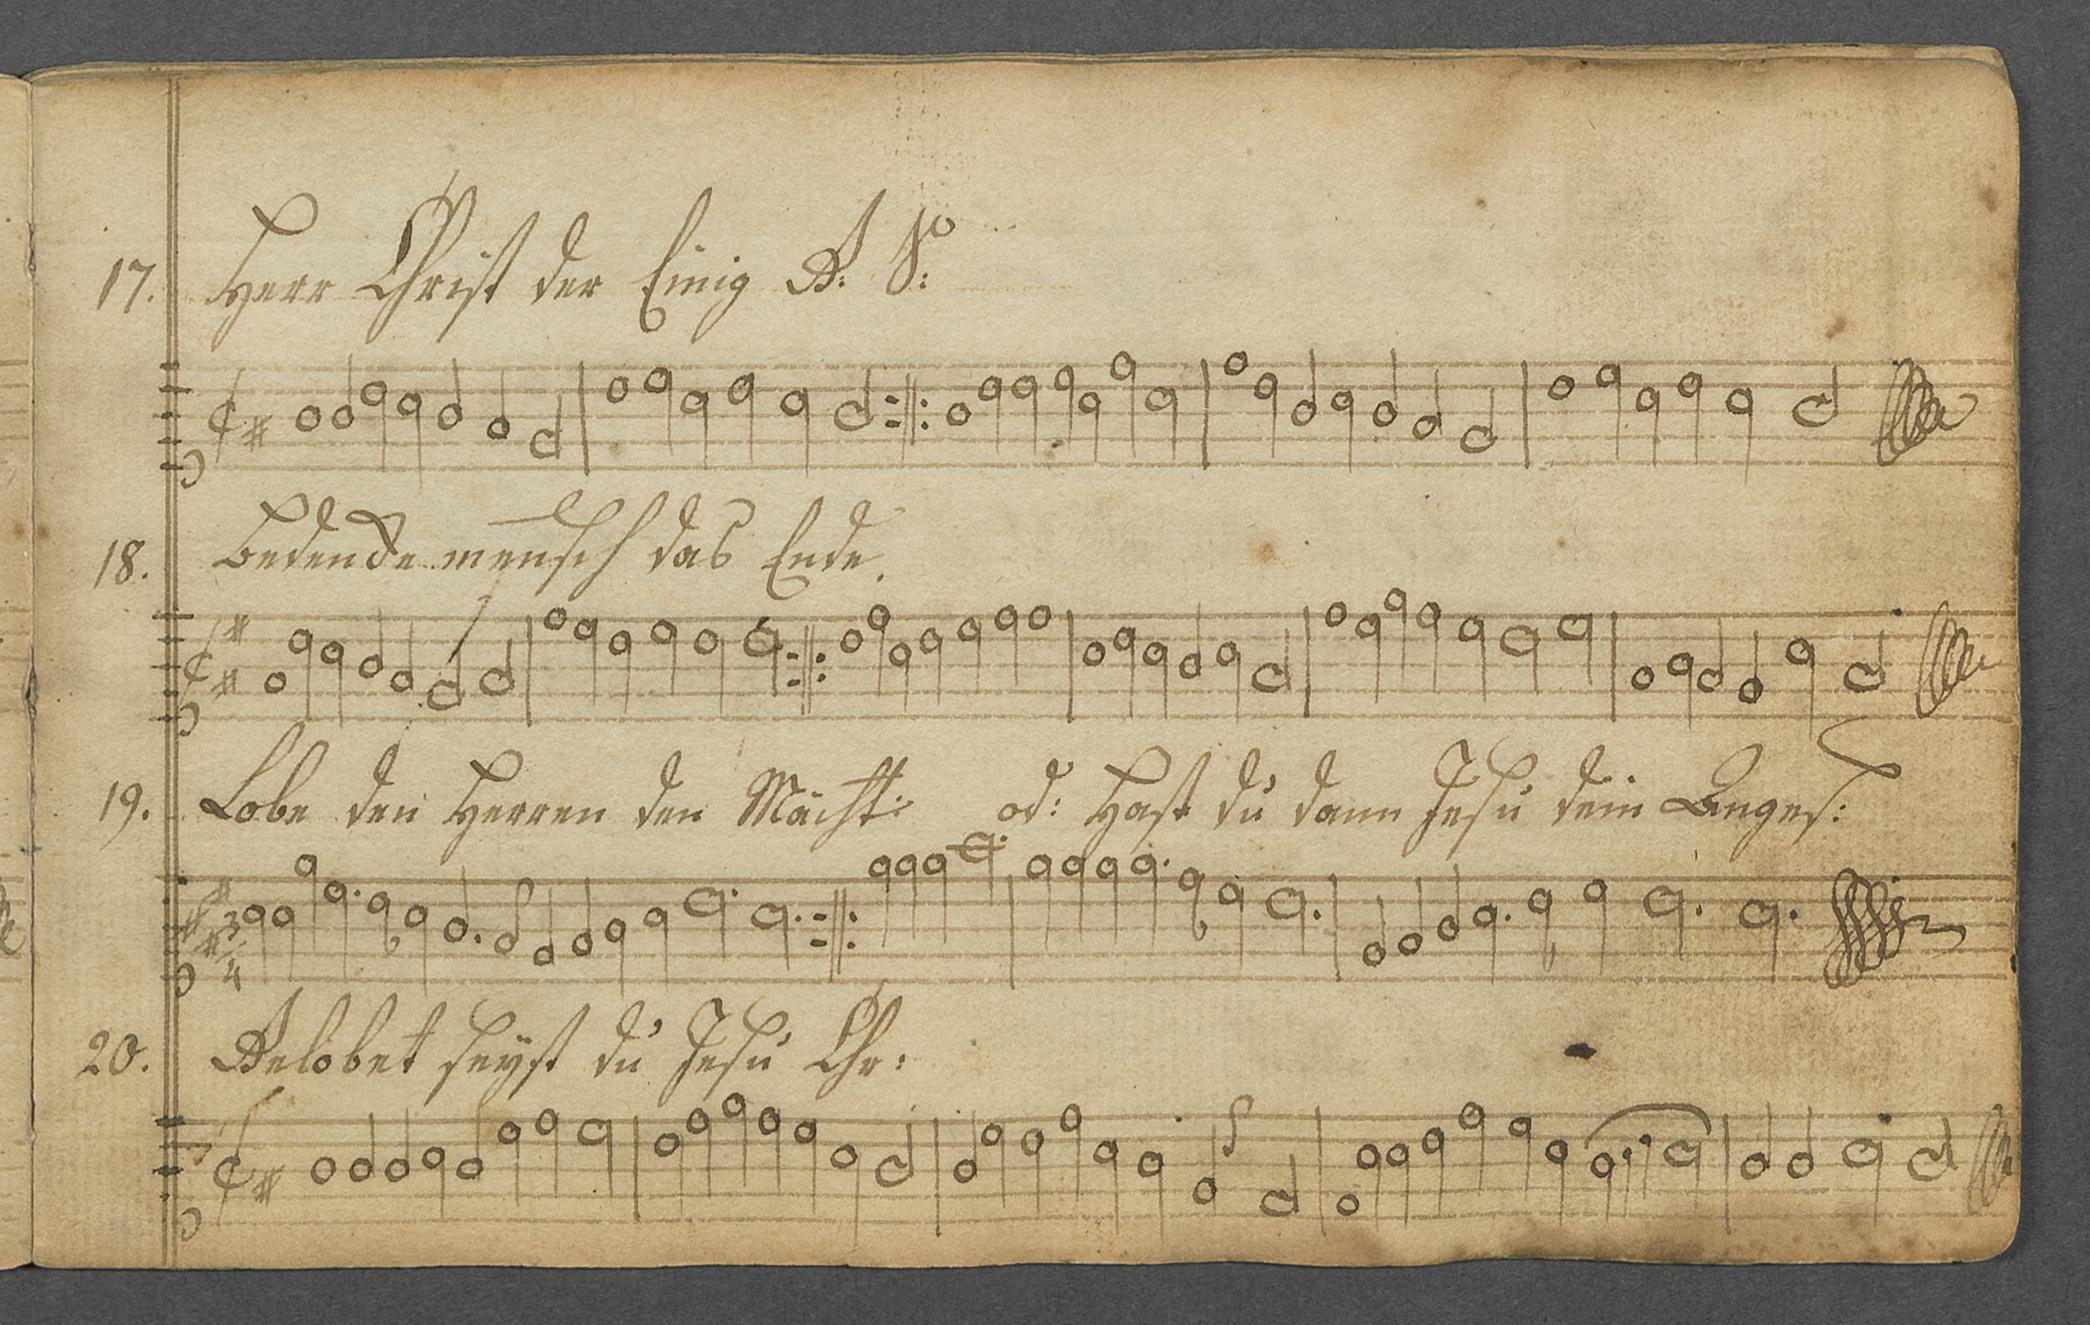 17. Herr Christ der Einig G: S:
18. Bedencke mensch das Ende.
19. Lobe den Herren den Mächt: od: Hast du dann Jesu dein Anges:
3
4
20. Gelobet seyst du Jesu Chr: